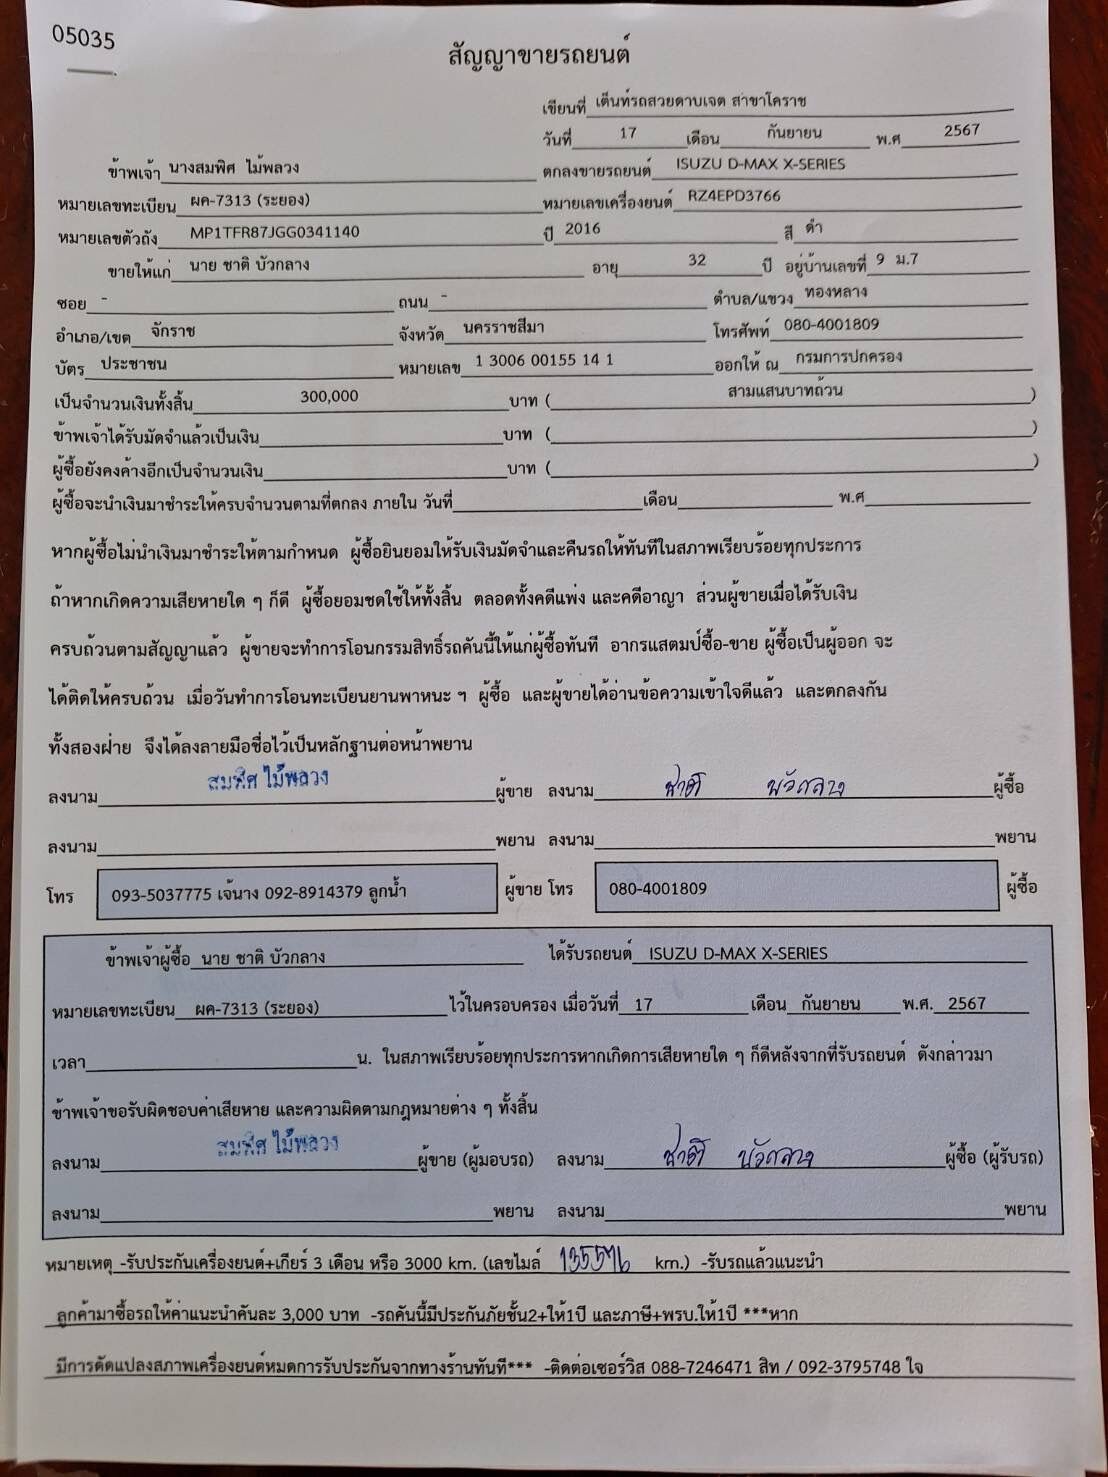 05035
สัญญาขายรถยนต์
เขียนที่ เต็นท์รถสวยดาบเจต สาขาโคราช
วันที่ 17 เดือน กันยายน พ.ศ 2567
ข้าพเจ้า นางสมพิศ ไม้พลวง ตกลงขายรถยนต์ ISUZU D-MAX X-SERIES
หมายเลขทะเบียน ผค-7313 (ระยอง) หมายเลขเครื่องยนต์ RZ4EPD3766
หมายเลขตัวถัง MP1TFR87JGG0341140 ปี 2016 สี ดำ
ขายให้แก่ นาย ชาติ บัวกลาง อายุ 32 ปี อยู่บ้านเลขที่ 9 ม.7
ซอย - ถนน - ตำบล/แขวง ทองหลาง
อำเภอ/เขต จักราช จังหวัด นครราชสีมา โทรศัพท์ 080-4001809
บัตร ประชาชน หมายเลข 1 3006 00155 14 1 ออกให้ ณ กรมการปกครอง
เป็นจำนวนเงินทั้งสิ้น 300,000 บาท ( สามแสนบาทถ้วน )
ข้าพเจ้าได้รับมัดจำแล้วเป็นเงิน บาท ( )
ผู้ซื้อยังคงค้างอีกเป็นจำนวนเงิน บาท ( )
ผู้ซื้อจะนำเงินมาชำระให้ครบจำนวนตามที่ตกลง ภายใน วันที่ เดือน พ.ศ
หากผู้ซื้อไม่นำเงินมาชำระให้ตามกำหนด ผู้ซื้อยินยอมให้รับเงินมัดจำและคืนรถให้ทันทีในสภาพเรียบร้อยทุกประการ
ถ้าหากเกิดความเสียหายใด ๆ ก็ดี ผู้ซื้อยอมชดใช้ให้ทั้งสิ้น ตลอดทั้งคดีแพ่ง และคดีอาญา ส่วนผู้ขายเมื่อได้รับเงิน
ครบถ้วนตามสัญญาแล้ว ผู้ขายจะทำการโอนกรรมสิทธิ์รถคันนี้ให้แก่ผู้ซื้อทันที อากรแสตมป์ซื้อ-ขาย ผู้ซื้อเป็นผู้ออก จะ
ได้ติดให้ครบถ้วน เมื่อวันทำการโอนทะเบียนยานพาหนะ ฯ ผู้ซื้อ และผู้ขายได้อ่านข้อความเข้าใจดีแล้ว และตกลงกัน
ทั้งสองฝ่าย จึงได้ลงลายมือชื่อไว้เป็นหลักฐานต่อหน้าพยาน
ลงนาม สมพิศ ไม้พลวง ผู้ขาย ลงนาม ชาติ บัวกลาง ผู้ซื้อ
ลงนาม พยาน ลงนาม พยาน
โทร 093-5037775 เจ้นาง 092-8914379 ลูกน้ำ ผู้ขาย โทร 080-4001809 ผู้ซื้อ
ข้าพเจ้าผู้ซื้อ นาย ชาติ บัวกลาง ได้รับรถยนต์ ISUZU D-MAX X-SERIES
หมายเลขทะเบียน ผค-7313 (ระยอง) ไว้ในครอบครอง เมื่อวันที่ 17 เดือน กันยายน พ.ศ. 2567
เวลา น. ในสภาพเรียบร้อยทุกประการหากเกิดการเสียหายใด ๆ ก็ดีหลังจากที่รับรถยนต์ ดังกล่าวมา
ข้าพเจ้าขอรับผิดชอบค่าเสียหาย และความผิดตามกฎหมายต่าง ๆ ทั้งสิ้น
ลงนาม สมพิศ ไม้พลวง ผู้ขาย (ผู้มอบรถ) ลงนาม ชาติ บัวกลาง ผู้ซื้อ (ผู้รับรถ)
ลงนาม พยาน ลงนาม พยาน
หมายเหตุ -รับประกันเครื่องยนต์+เกียร์ 3 เดือน หรือ 3000 km. (เลขไมล์ 135576 km.) -รับรถแล้วแนะนำ
ลูกค้ามาซื้อรถให้ค่าแนะนำคันละ 3,000 บาท -รถคันนี้มีประกันภัยชั้น2+ให้1ปี และภาษี+พรบ.ให้1ปี ***หาก
มีการดัดแปลงสภาพเครื่องยนต์หมดการรับประกันจากทางร้านทันที*** -ติดต่อเซอร์วิส 088-7246471 สิท / 092-3795748 ใจ